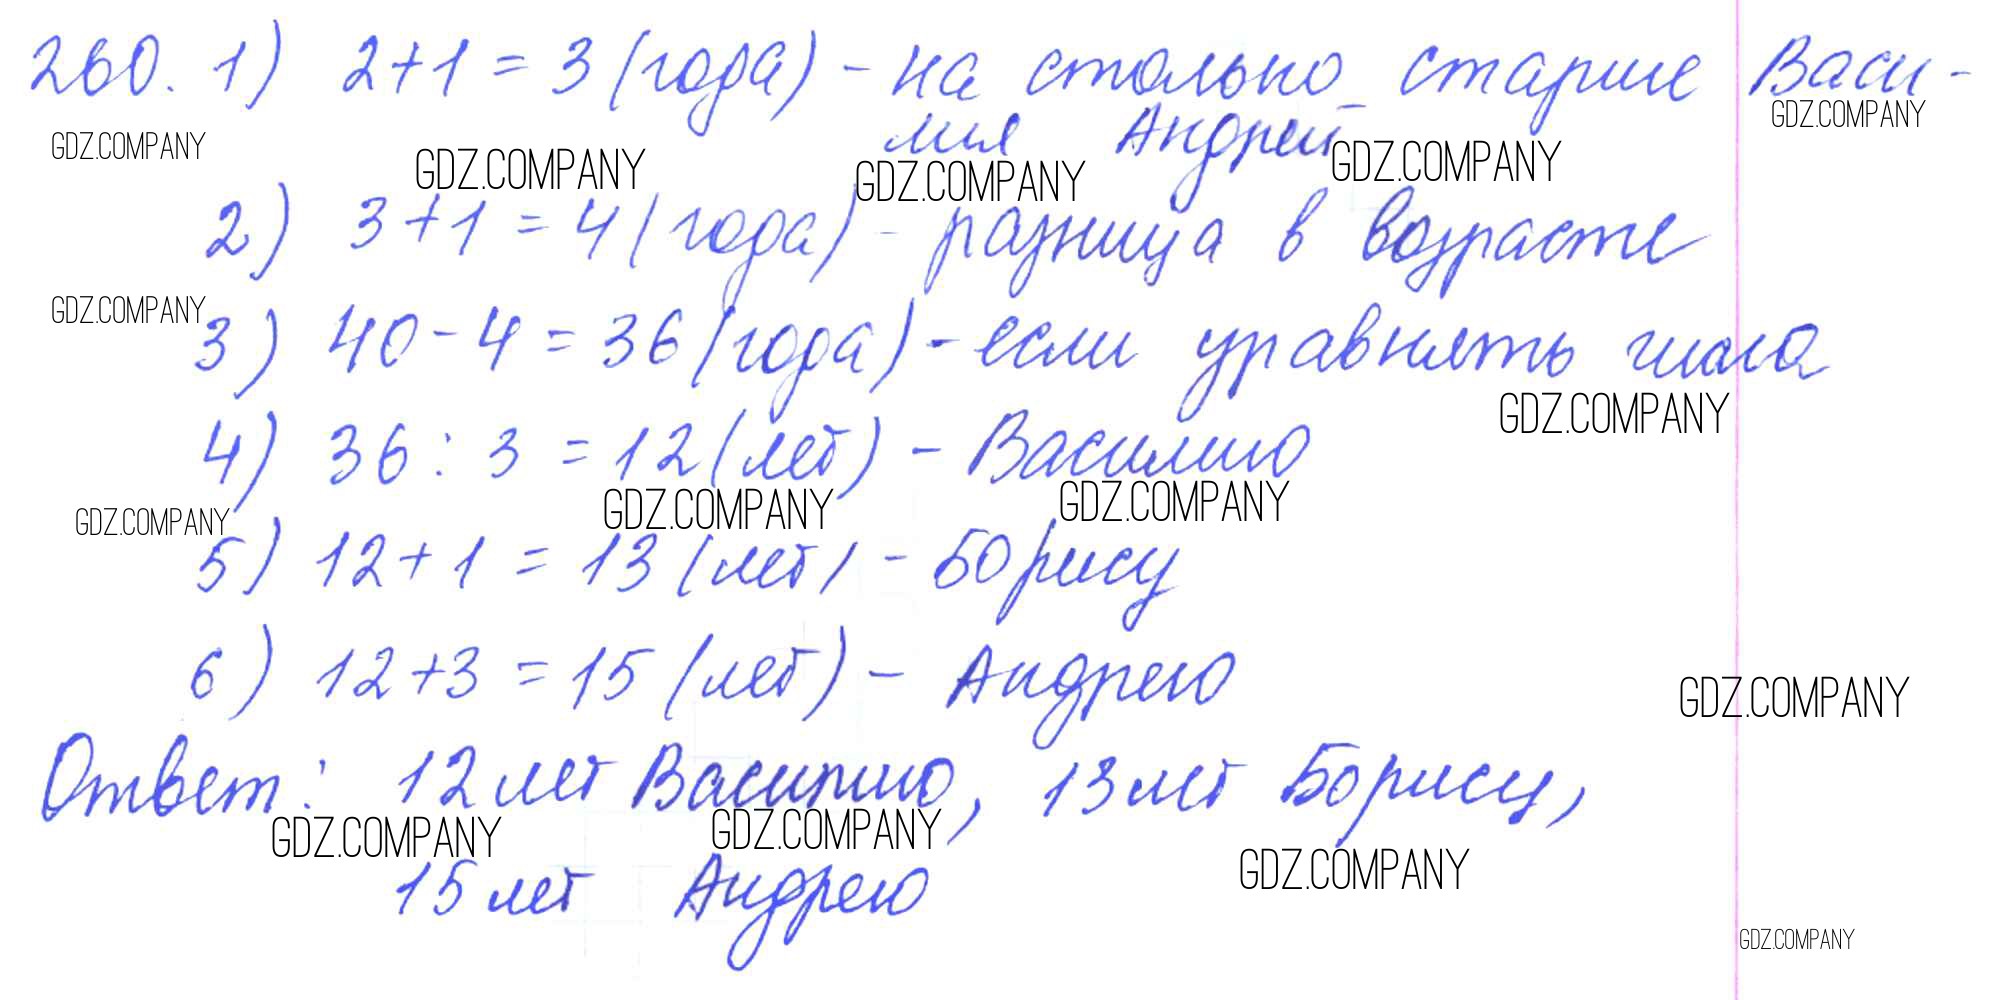 260. 1) 2+1 = 3 (года) - на столько старше Васи-
лия Андрей
GDZ.COMPANY GDZ.COMPANY GDZ.COMPANY GDZ.COMPANY GDZ.COMPANY
2) 3+1 = 4 (года) - разница в возрасте
GDZ.COMPANY
3) 40-4 = 36 (года) - если уравнять числа
GDZ.COMPANY
4) 36 : 3 = 12 (лет) - Василию
GDZ.COMPANY GDZ.COMPANY GDZ.COMPANY
5) 12+1 = 13 (лет) - Борису
6) 12+3 = 15 (лет) - Андрею
GDZ.COMPANY
Ответ: 12 лет Василию, 13 лет Борису,
GDZ.COMPANY GDZ.COMPANY GDZ.COMPANY
15 лет Андрею
GDZ.COMPANY